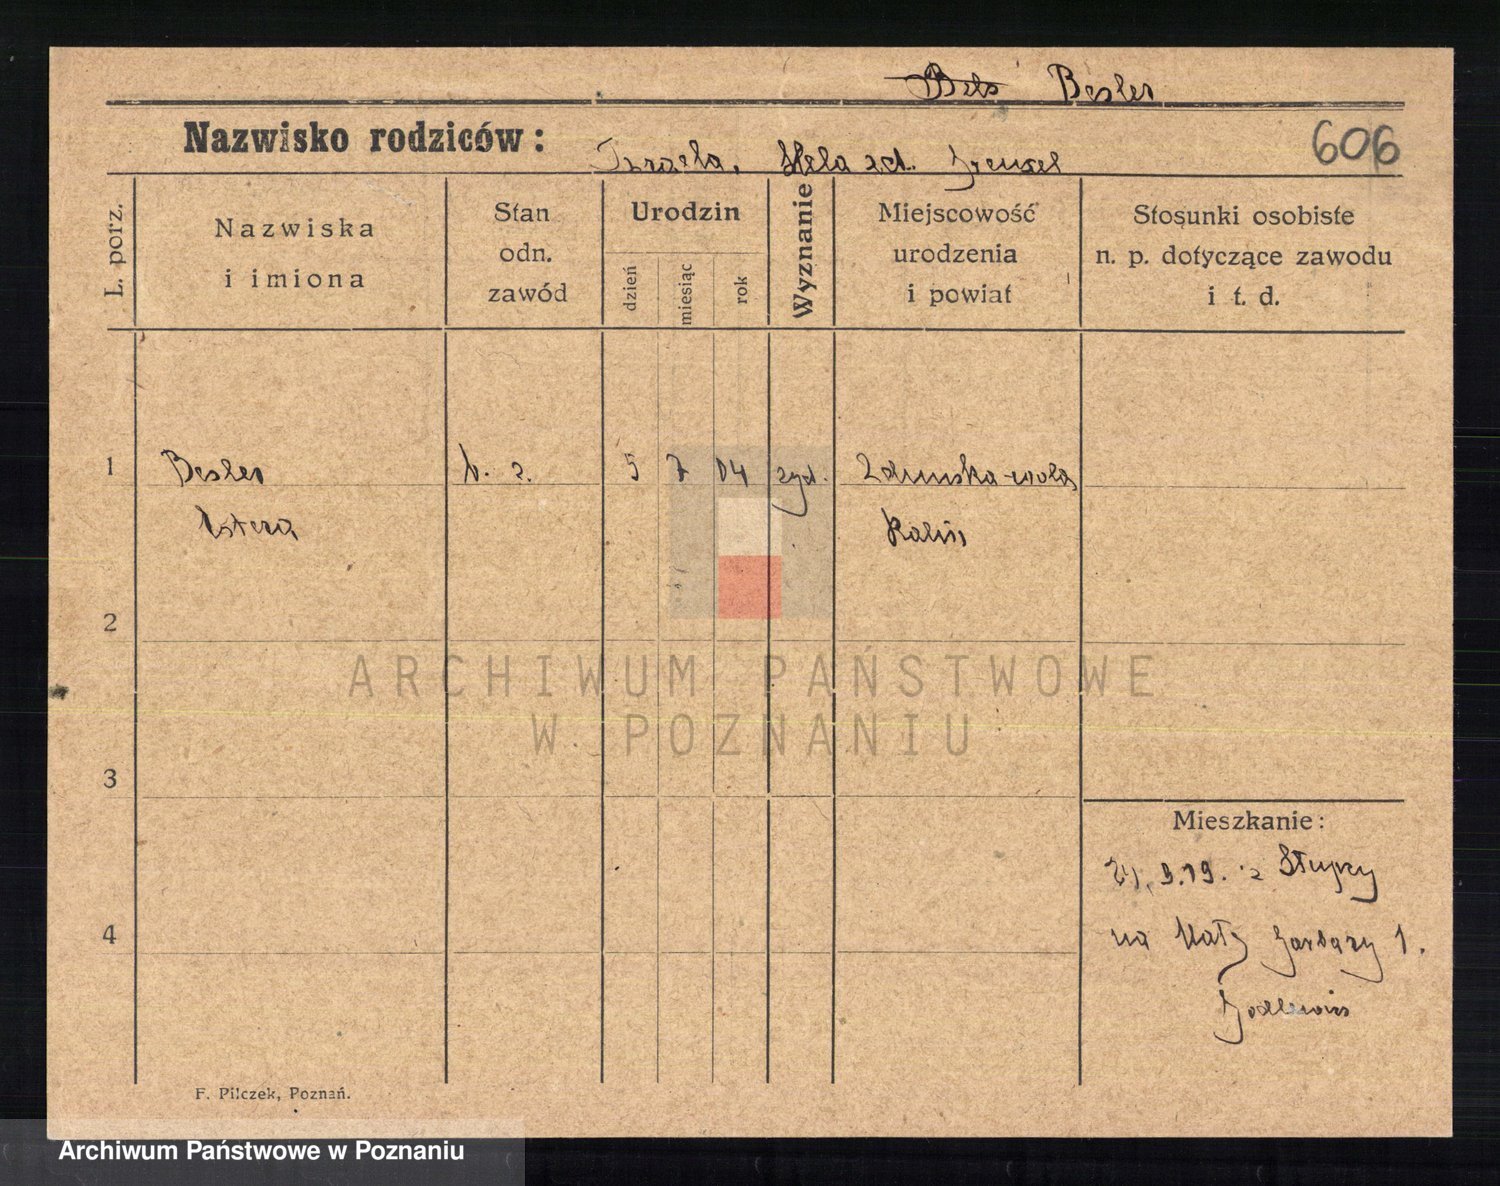 Besler
Nazwisko rodziców:
Izraela, Hela zd. Frenkel
606
L. porz.
Nazwiska
i imiona
Stan
odn.
zawód
Urodzin
dzień
miesiąc
rok
Wyznanie
Miejscowość
urodzenia
i powiat
Stosunki osobiste
n. p. dotyczące zawodu
i t. d.
1
Besler
Estera
b. z.
5
7
04
żyd.
Zduńska-wola
Kalisz
2
3
4
ARCHIWUM PAŃSTWOWE
W POZNANIU
Mieszkanie:
9.19. z Słupcy
na Małe Garbary 1.
F. Pilczek, Poznań.
Archiwum Państwowe w Poznaniu